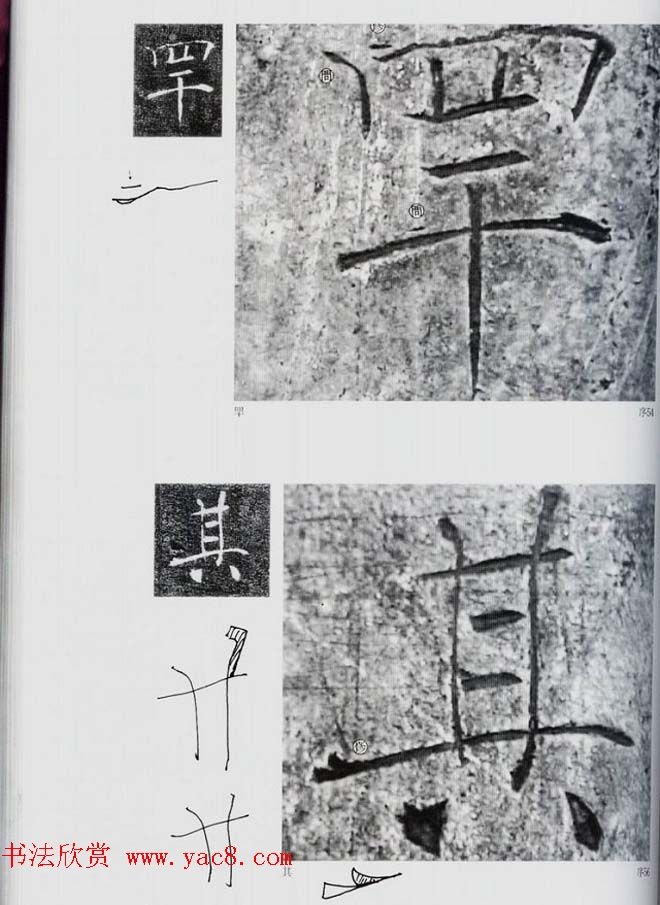 罕
罕 序54
其
书法欣赏 www.yac8.com
其 序56